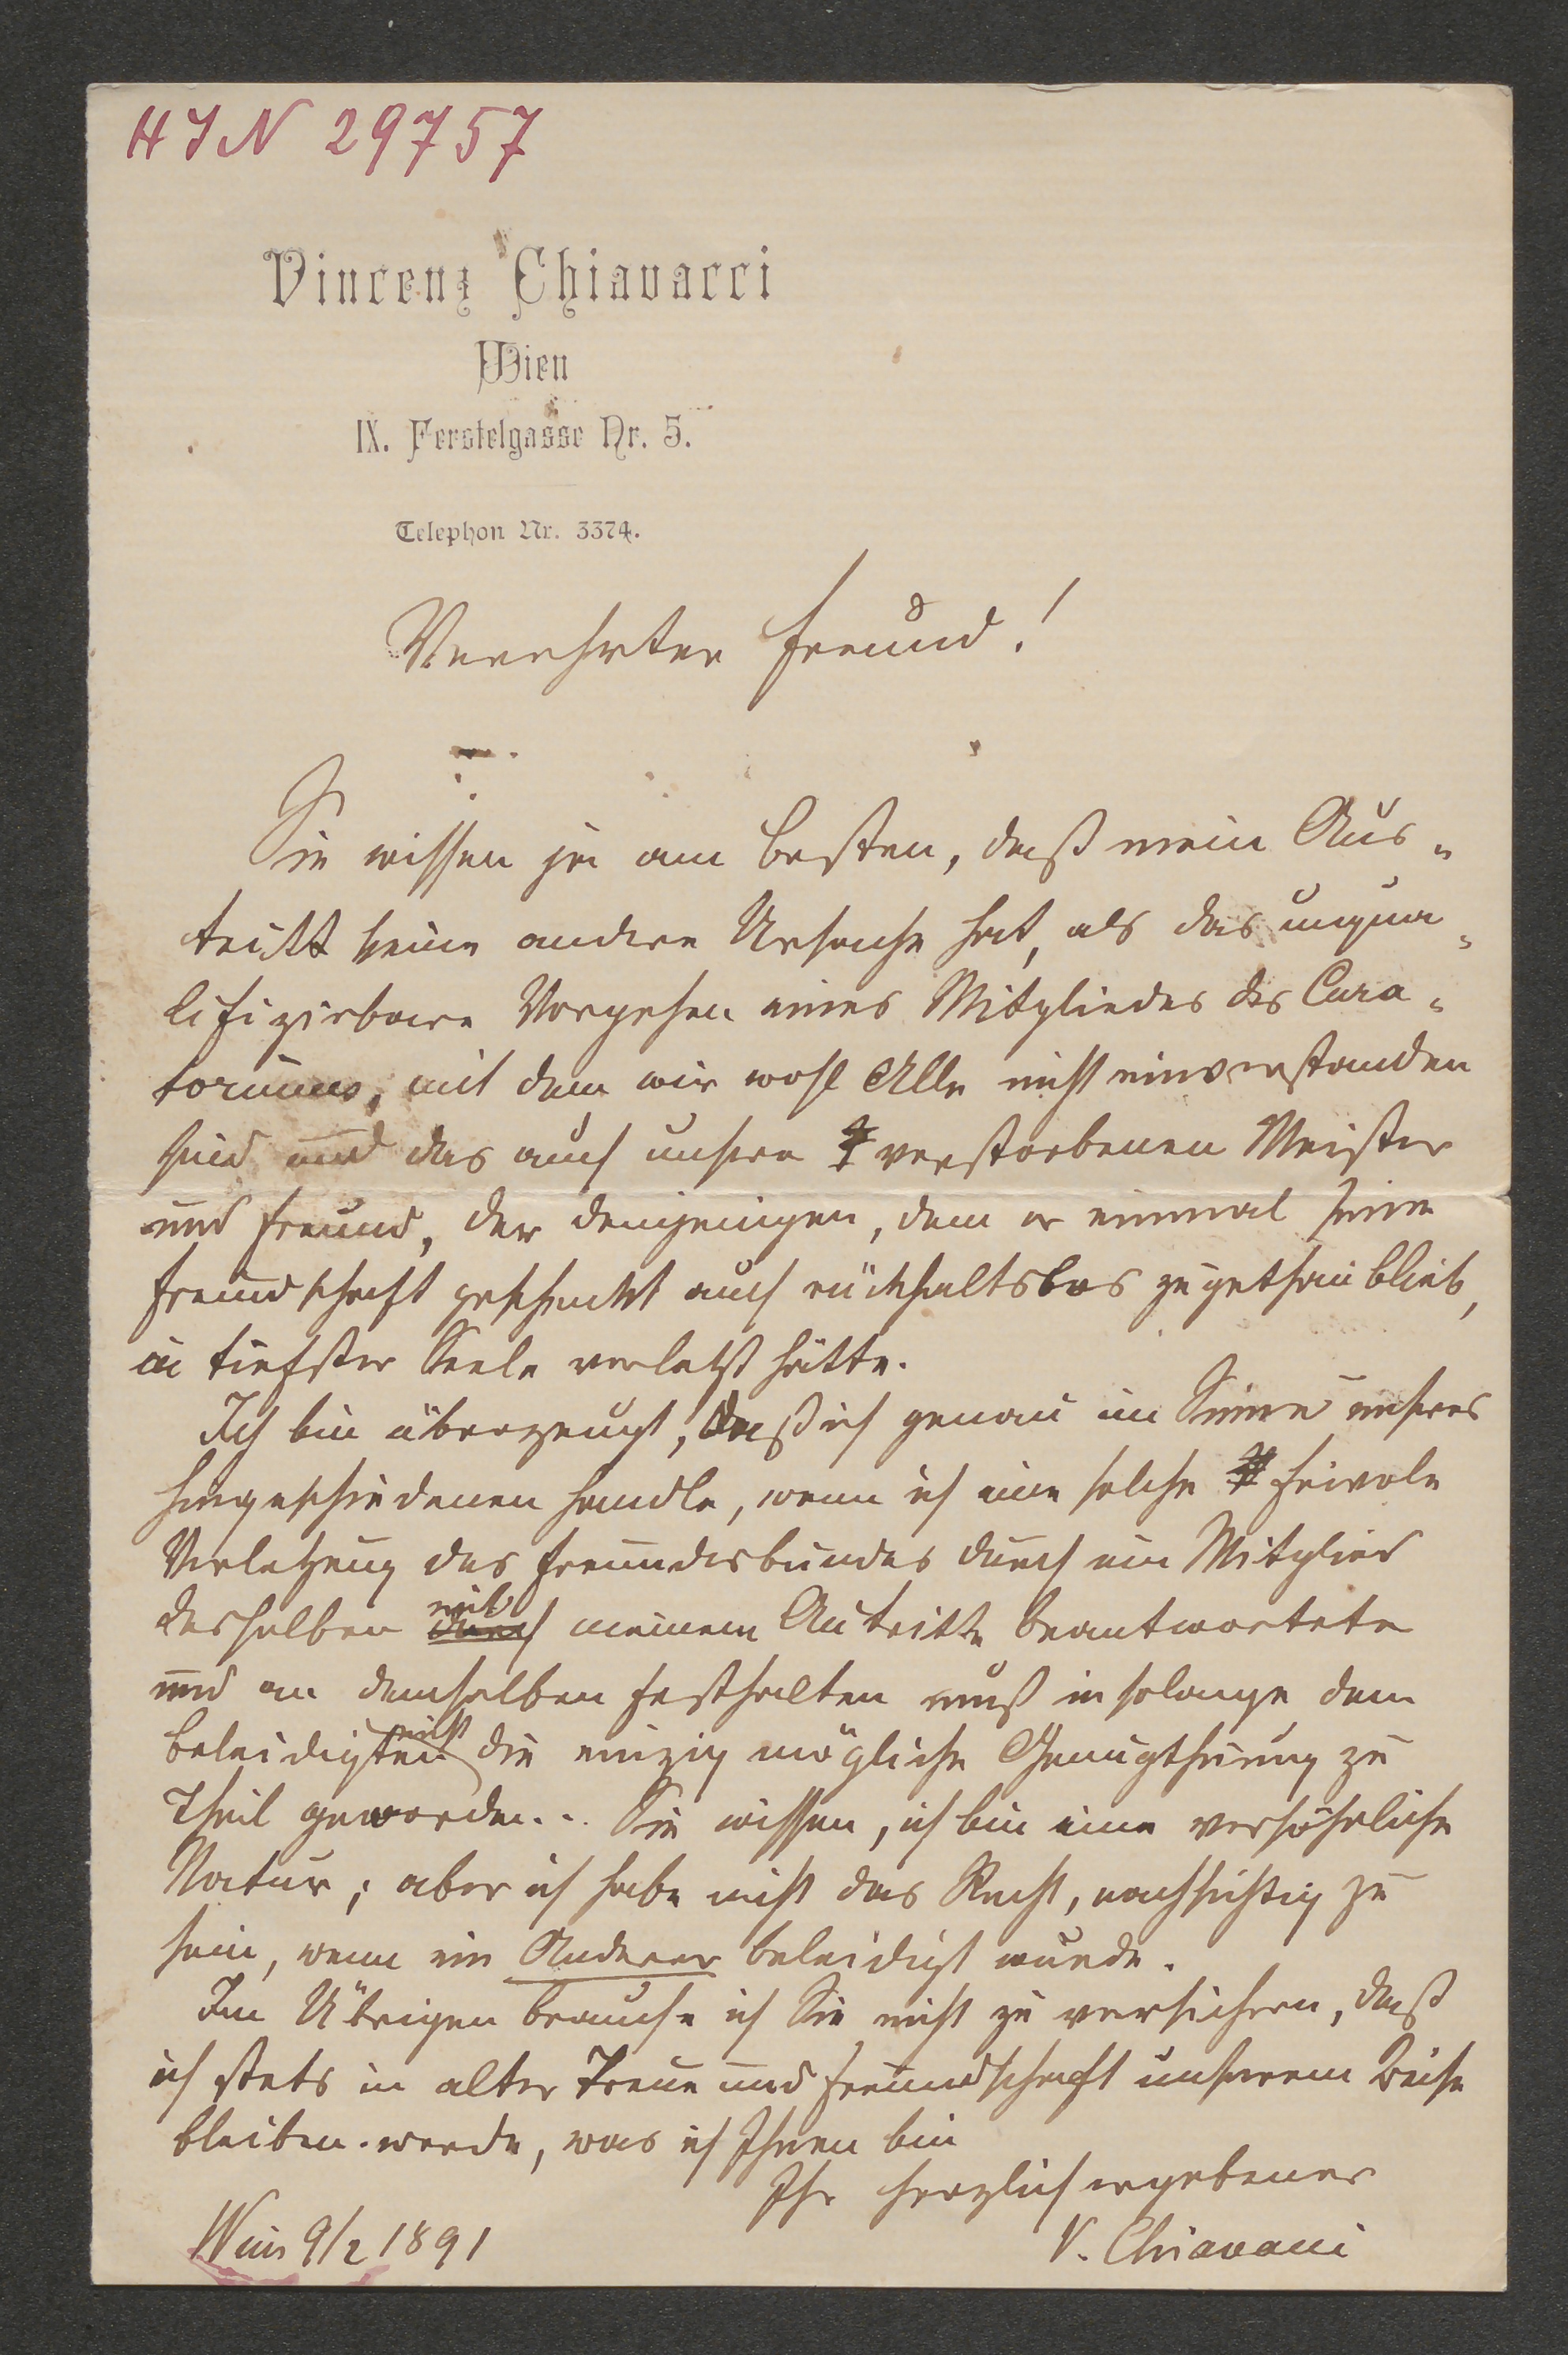 HIN 29757
Vincenz Chiavacci
Wien
IX. Ferstelgasse Nr. 5.
Telephon Nr. 3374.
Verehrter Freund!
Sie wissen ja am besten, daß mein Aus-
tritt keine andere Ursache hat, als das unqua-
lifizirbare Vorgehen eines Mitgliedes des Cura-
toriums, mit dem wir wohl Alle nicht einverstanden
sind und das auch unsern verstorbenen Meister
und Freund, der demjenigen, dem er einmal seine
Freundschaft geschenkt auch rückhaltslos zugethan blieb,
in tiefster Seele verletzt hätte.
Ich bin überzeugt, daß ich genau im Sinne unseres
Hingeschiedenen handle, wenn ich eine solche frivole
Verletzung des Freundesbundes durch ein Mitglied
desselben durch mit meinem Autritte beantwortete
und an demselben festhalten muß insolange dem
Beleidigten nicht die einzig mögliche Genugthuung zu
Theil geworden. . Sie wissen, ich bin eine versöhnliche
Natur; aber ich habe nicht das Recht, nachsichtig zu
sein, wenn ein Anderer beleidigt wurde.
Im Übrigen brauche ich Sie nicht zu versichern, daß
ich stets in alter Treue und Freundschaft unserem
bleiben werde, was ich Ihnen bin
Ihr herzlich ergebener
V. Chiavacci
Wien 9/2 1891